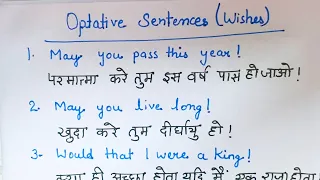 Optative Sentences (Wishes)
1. May you pass this year!
परमात्मा करे तुम इस वर्ष पास हो जाओ!
2. May you live long!
खुदा करे तुम दीर्घायु हो!
3- Would that I were a king!
क्या ही अच्छा होता यदि मैं एक राजा होता